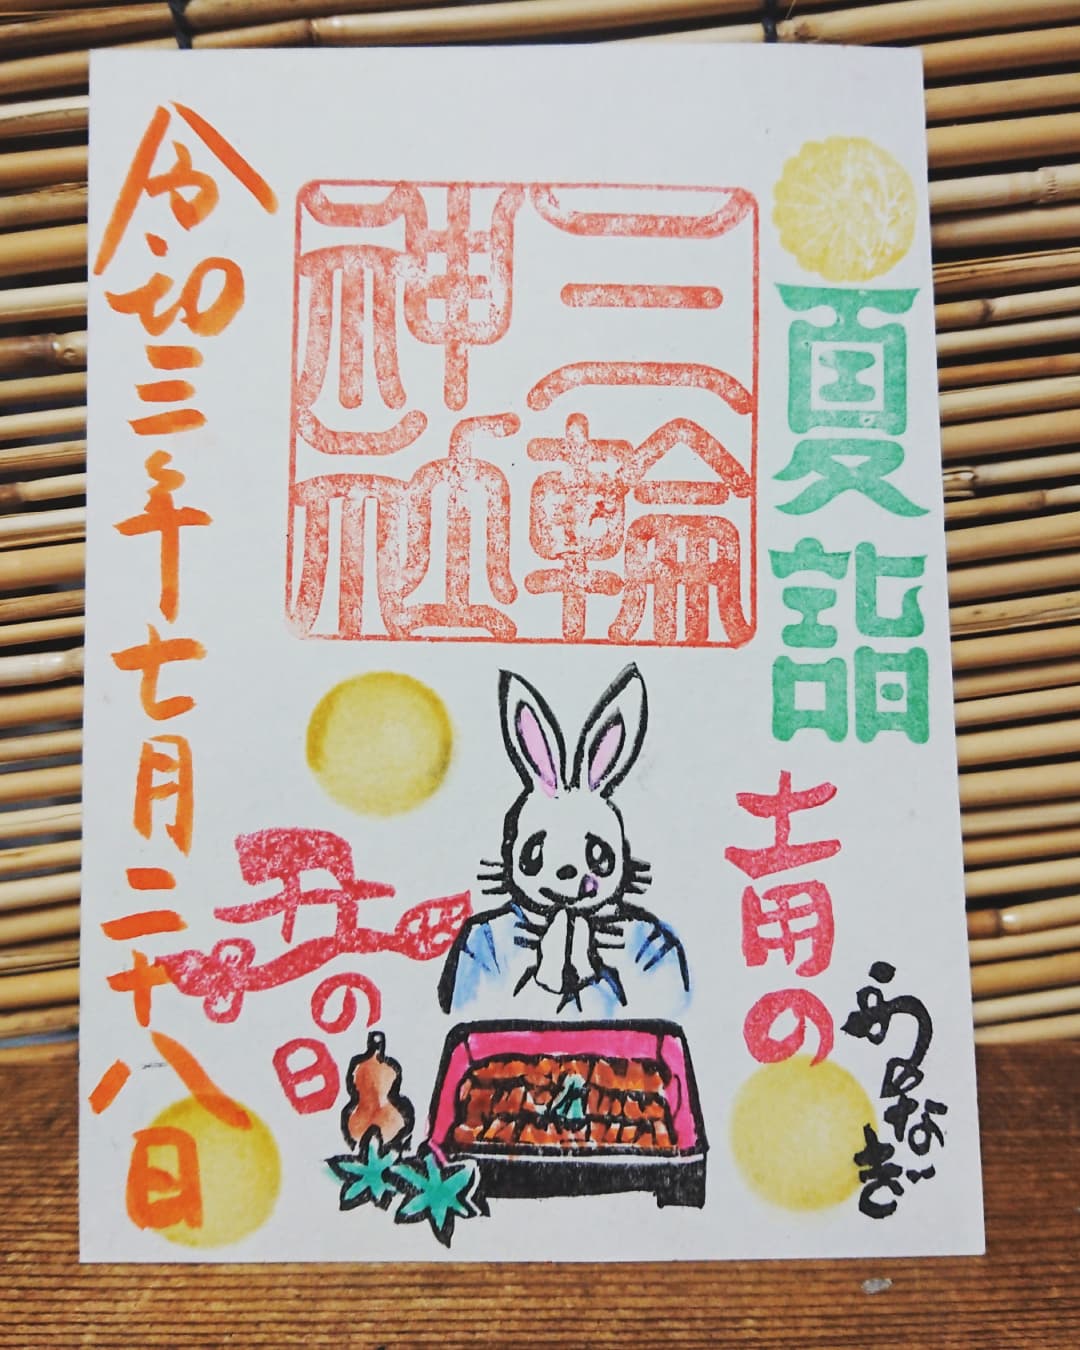 夏詣
三輪
神社
土用の
丑の日
令和三年七月二十八日